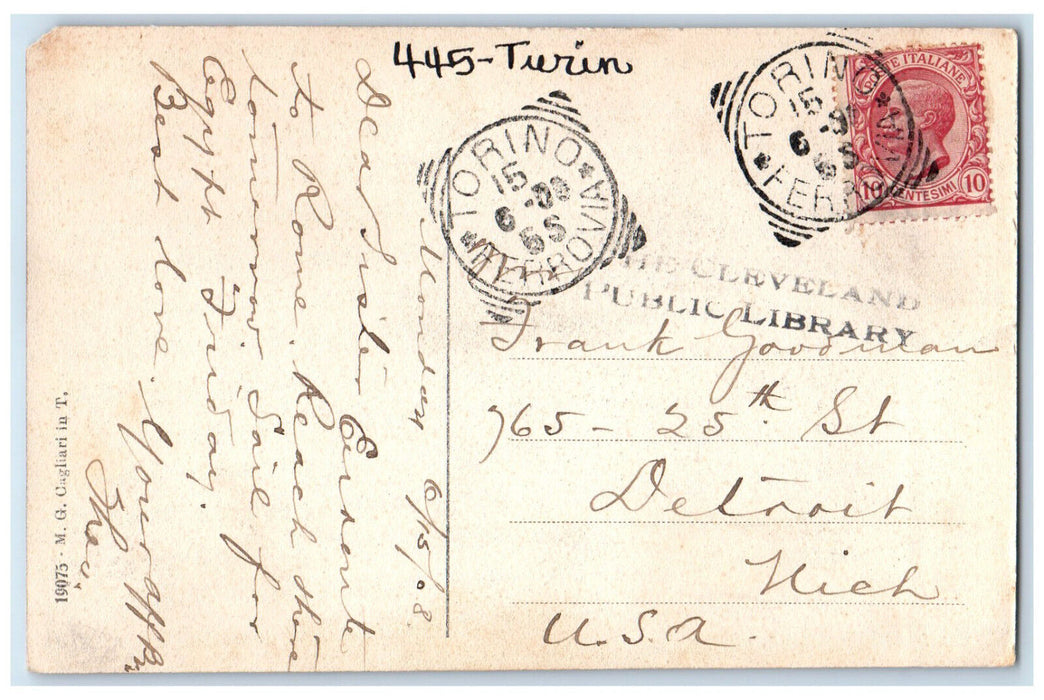 445-Turin
TORINO
15
6 -08
6S
FERROVIA
TORINO
15
6
FERROVIA
POSTE ITALIANE
10 CENTESIMI 10
THE CLEVELAND
PUBLIC LIBRARY
Monday 6/15/08.
Dear Sister Enroute
to Rome. Reach there
tomorrow. Sail for
Egypt Friday.
Best love. Your aff. Br.
Frank Goodman
965 - 25th St
Detroit
Mich
U.S.A.
19075 - M. G. Cagliari in T.